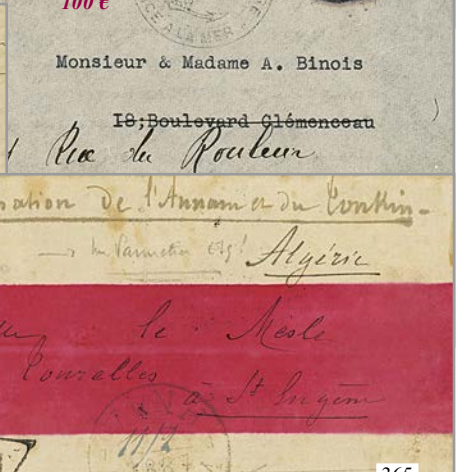 100 €
CE A LA MER
Monsieur & Madame A. Binois
18;Boulevard Clémenceau
Rue du Rouleur
ration de l'Annam et du Tonkin-
Algérie
le Mesle
Courcelles
à St Eugène
11/2
265